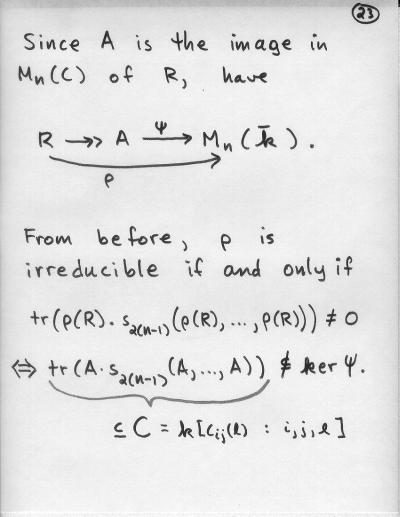 23
Since A is the image in
Mn(C) of R, have
R ↠ A —ψ→ Mn(k̄).
ρ
From before, ρ is
irreducible if and only if
tr(ρ(R)·s2(n-1)(ρ(R),...,ρ(R))) ≠ 0
⇔ tr(A·s2(n-1)(A,...,A)) ⊄ ker ψ.
⊆ C = k[cij(l) : i,j,l]